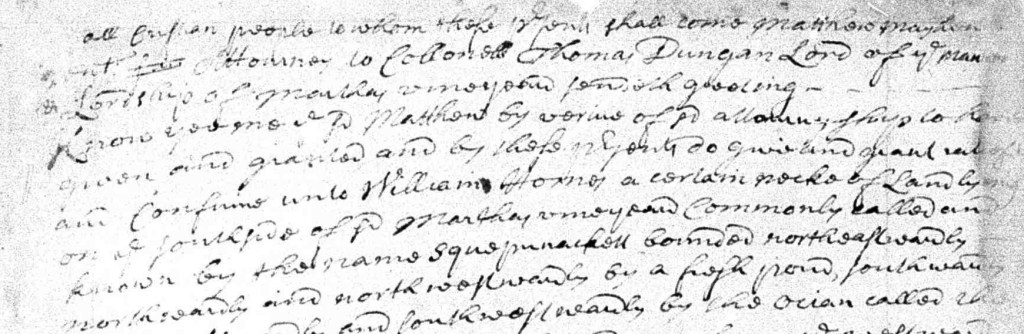 all Cristian people to whom these psents shall come Matthew Mayhew
gent Attourney to Collonell Thomas Dungan Lord of ye Manor
& Lordship of Marthas vineyeard sendeth greeting
Know yee me ye sd Matthew by vertue of sd attorneyship to
given and granted and by these psents do give and graunt
and Confirme unto William Hornes a certain necke of Land lying
on ye southside of sd Marthas vineyeard Commonly called and
known by the name Squepunackett bounded northeastwardly
northwardly and northwestwardly by a fresh pond, southwardly
and southwestwardly by the Ocian called the